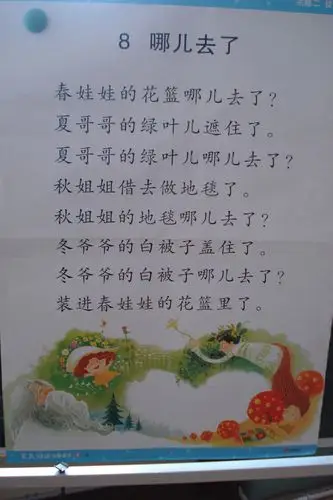 8 哪儿去了
春娃娃的花篮哪儿去了？
夏哥哥的绿叶儿遮住了。
夏哥哥的绿叶儿哪儿去了？
秋姐姐借去做地毯了。
秋姐姐的地毯哪儿去了？
冬爷爷的白被子盖住了。
冬爷爷的白被子哪儿去了？
装进春娃娃的花篮里了。